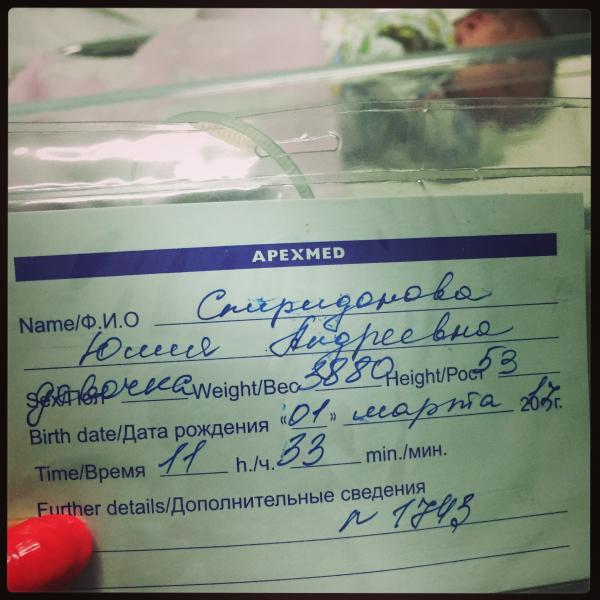 APEXMED
Name/Ф.И.О Спиридонова
Юлия Андреевна
Sex/Пол девочка Weight/Вес 3880 Height/Рост 53
Birth date/Дата рождения «01» марта 2017г.
Time/Время 11 h./ч. 33 min./мин.
Further details/Дополнительные сведения
n 1743